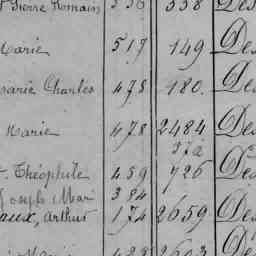 Pierre Romain 536 338 Des
Marie 517 149 Des
Marie Charles 478 180. Des
Marie 478 2484 Des
372
Théophile 459 726 Des
Joseph Mari 384
aux, Arthur 174 2659 Des
2603